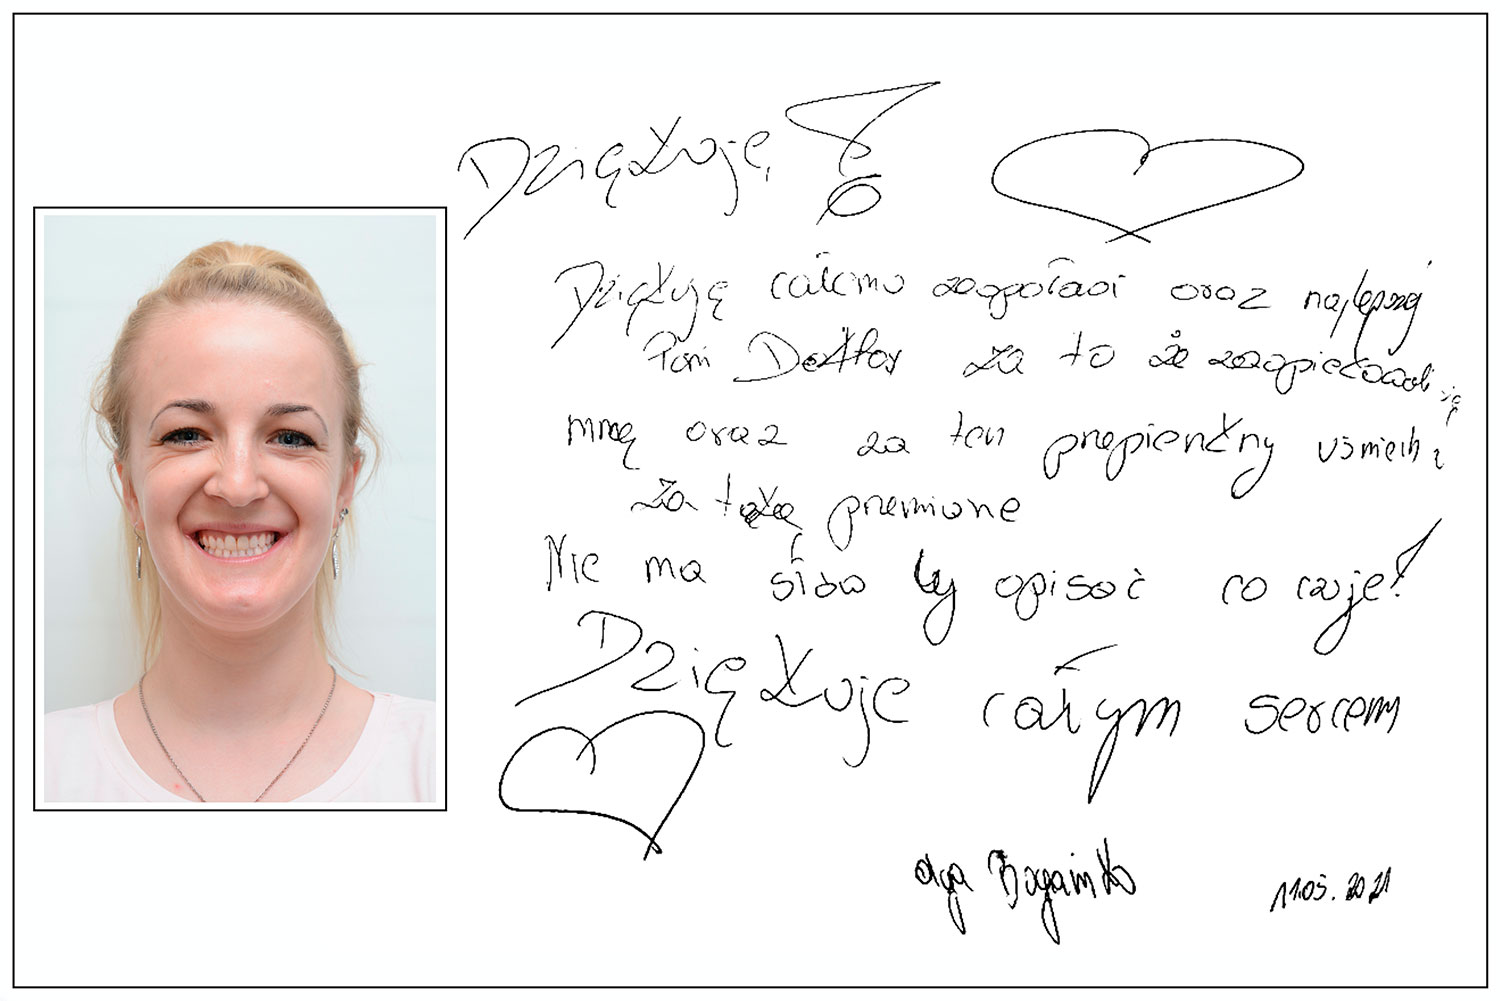 Dziękuję!
Dziękuję całemu zespołowi oraz najlepszej
Pani Doktor za to że zaopiekowali się
mną oraz za ten przepienkny uśmiech i
za taką przemione
Nie ma słów by opisać co czuje!
Dziękuje całym sercem
Olga
11.05.2021